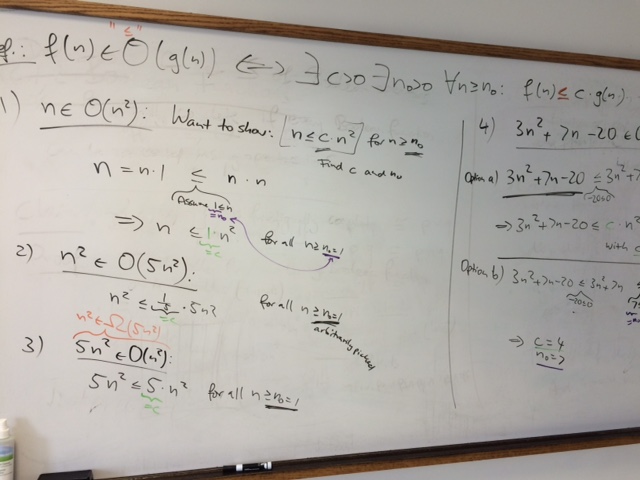 "≤"
ef.: f(n) ∈ O(g(n)) ⟺ ∃c>0 ∃n₀>0 ∀n≥n₀: f(n) ≤ c·g(n).
1) n ∈ O(n²): Want to show: [n ≤ c·n²] for n ≥ n₀
Find c and n₀
n = n·1 ≤ n·n
Assume 1≤n
=n₀
⇒ n ≤ 1·n² for all n ≥ n₀=1
=c
2) n² ∈ O(5n²):
n² ≤ 1/5 · 5n² for all n ≥ n₀=1
=c
arbitrarily picked
n² ∈ Ω(5n²)
3) 5n² ∈ O(n²):
5n² ≤ 5·n² for all n ≥ n₀=1
=c
4) 3n² + 7n - 20 ∈ O
Option a) 3n²+7n-20 ≤ 3n²+7
-20≤0
⇒ 3n²+7n-20 ≤ c·n²
with c
Option b) 3n²+7n-20 ≤ 3n²+7n ≤
-20≤0
⇒ c=4
n₀=7